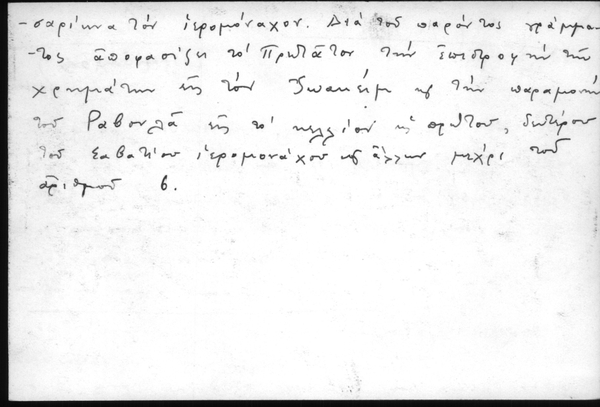 -σαρίωνα τόν ἱερομόναχον. Διά τοῦ παρόντος γράμμα-
-τος ἀποφασίζει τό Πρωτᾶτον τήν ἐπιστροφήν τῶν
χρημάτων εἰς τόν Ἰωακείμ κ τήν παραμονήν
τοῦ Ραβουλᾶ εἰς τό κελλίον ὡς πρώτου, δευτέρου
τοῦ Σαβατίου ἱερομονάχου κ ἄλλων μέχρι τοῦ
ἀριθμοῦ 6.